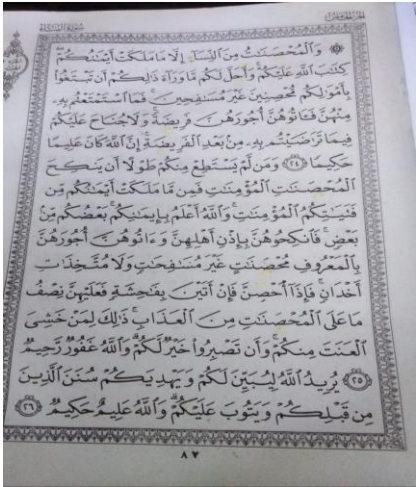 الجزء الخامس
سورة النساء
وَالْمُحْصَنَاتُ مِنَ النِّسَاءِ إِلَّا مَا مَلَكَتْ أَيْمَانُكُمْ
كِتَابَ اللَّهِ عَلَيْكُمْ وَأُحِلَّ لَكُم مَّا وَرَاءَ ذَٰلِكُمْ أَن تَبْتَغُوا
بِأَمْوَالِكُم مُّحْصِنِينَ غَيْرَ مُسَافِحِينَ فَمَا اسْتَمْتَعْتُم بِهِ
مِنْهُنَّ فَآتُوهُنَّ أُجُورَهُنَّ فَرِيضَةً وَلَا جُنَاحَ عَلَيْكُمْ
فِيمَا تَرَاضَيْتُم بِهِ مِن بَعْدِ الْفَرِيضَةِ إِنَّ اللَّهَ كَانَ عَلِيمًا
حَكِيمًا ٢٤ وَمَن لَّمْ يَسْتَطِعْ مِنكُمْ طَوْلًا أَن يَنكِحَ
الْمُحْصَنَاتِ الْمُؤْمِنَاتِ فَمِن مَّا مَلَكَتْ أَيْمَانُكُم مِّن
فَتَيَاتِكُمُ الْمُؤْمِنَاتِ وَاللَّهُ أَعْلَمُ بِإِيمَانِكُم بَعْضُكُم مِّن
بَعْضٍ فَانكِحُوهُنَّ بِإِذْنِ أَهْلِهِنَّ وَآتُوهُنَّ أُجُورَهُنَّ
بِالْمَعْرُوفِ مُحْصَنَاتٍ غَيْرَ مُسَافِحَاتٍ وَلَا مُتَّخِذَاتِ
أَخْدَانٍ فَإِذَا أُحْصِنَّ فَإِنْ أَتَيْنَ بِفَاحِشَةٍ فَعَلَيْهِنَّ نِصْفُ
مَا عَلَى الْمُحْصَنَاتِ مِنَ الْعَذَابِ ذَٰلِكَ لِمَنْ خَشِيَ
الْعَنَتَ مِنكُمْ وَأَن تَصْبِرُوا خَيْرٌ لَّكُمْ وَاللَّهُ غَفُورٌ رَّحِيمٌ
٢٥ يُرِيدُ اللَّهُ لِيُبَيِّنَ لَكُمْ وَيَهْدِيَكُمْ سُنَنَ الَّذِينَ
مِن قَبْلِكُمْ وَيَتُوبَ عَلَيْكُمْ وَاللَّهُ عَلِيمٌ حَكِيمٌ ٢٦